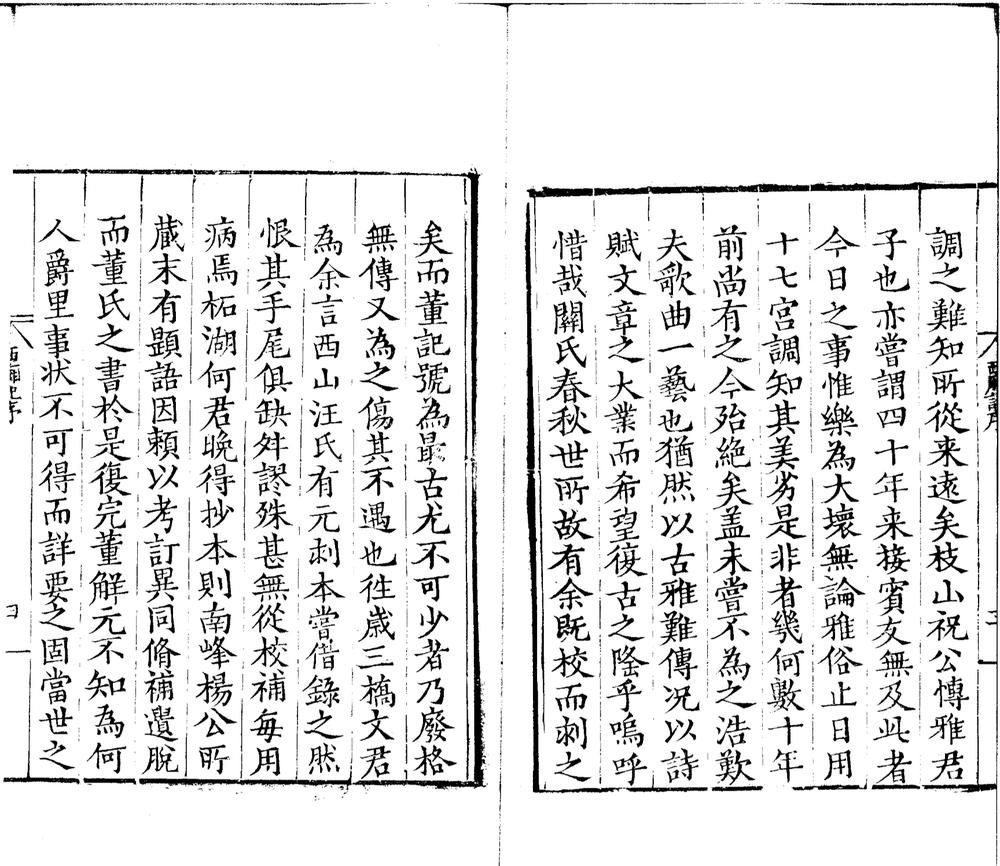 調之難知所從来遠矣枝山祝公愽雅君
子也亦嘗謂四十年来接賓友無及此者
今日之事惟樂為大壊無論雅俗止日用
十七宫調知其美劣是非者幾何數十年
前尚有之今殆絶矣盖未嘗不為之浩歎
夫歌曲一藝也猶然以古雅難傳况以詩
賦文章之大業而希望復古之隆乎嗚呼
惜哉關氏春秋世所故有余既校而刺之
矣而董記號為最古尤不可少者乃廢格
無傳又為之傷其不遇也徃歳三橋文君
為余言西山汪氏有元刺本嘗借錄之然
恨其手尾俱缺舛謬殊甚無從校補每用
病焉柘湖何君晚得抄本則南峰楊公所
蔵末有題語因賴以考訂異同脩補遺脫
而董氏之書於是復完董解元不知為何
人爵里事状不可得而詳要之固當世之
西廂記序